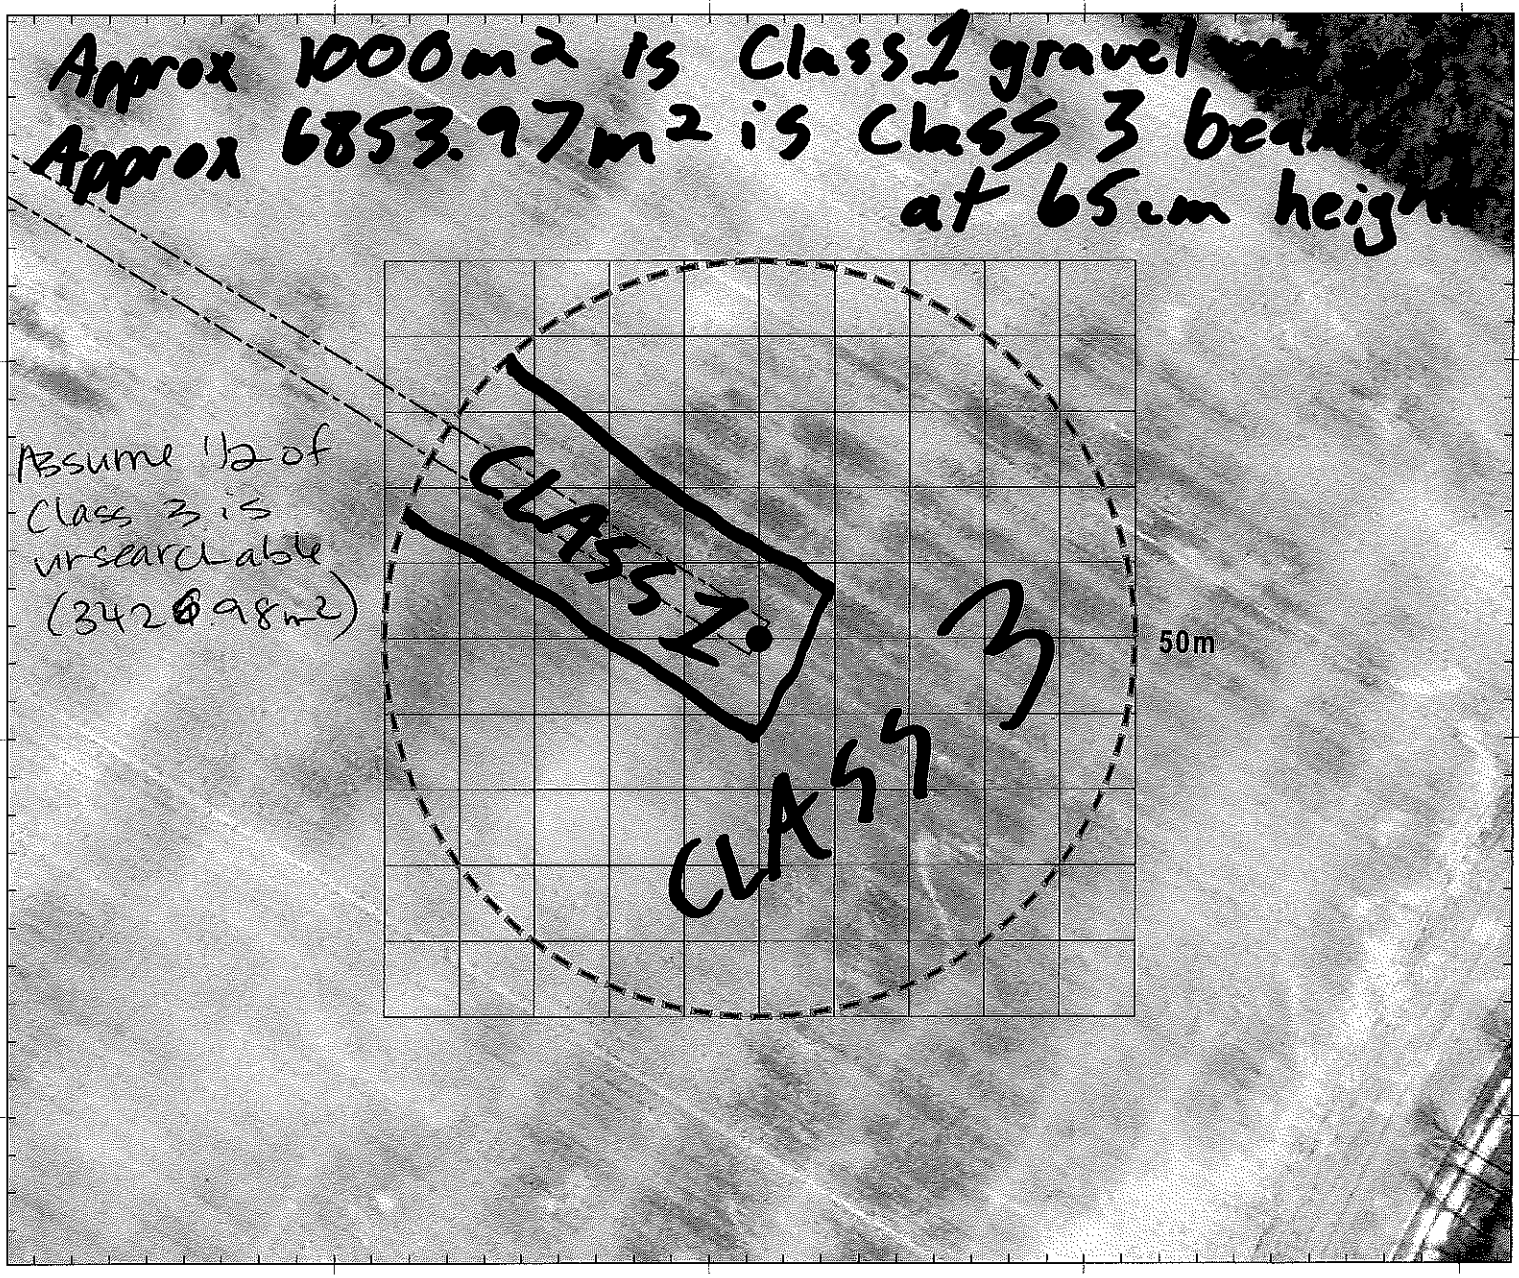 Approx 1000m² is Class 1 gravel
Approx 6853.97m² is Class 3 beans
at 65cm height
Assume 1/2 of
Class 3 is
unsearchable
(342698m²)
CLASS 1
50m
CLASS 3